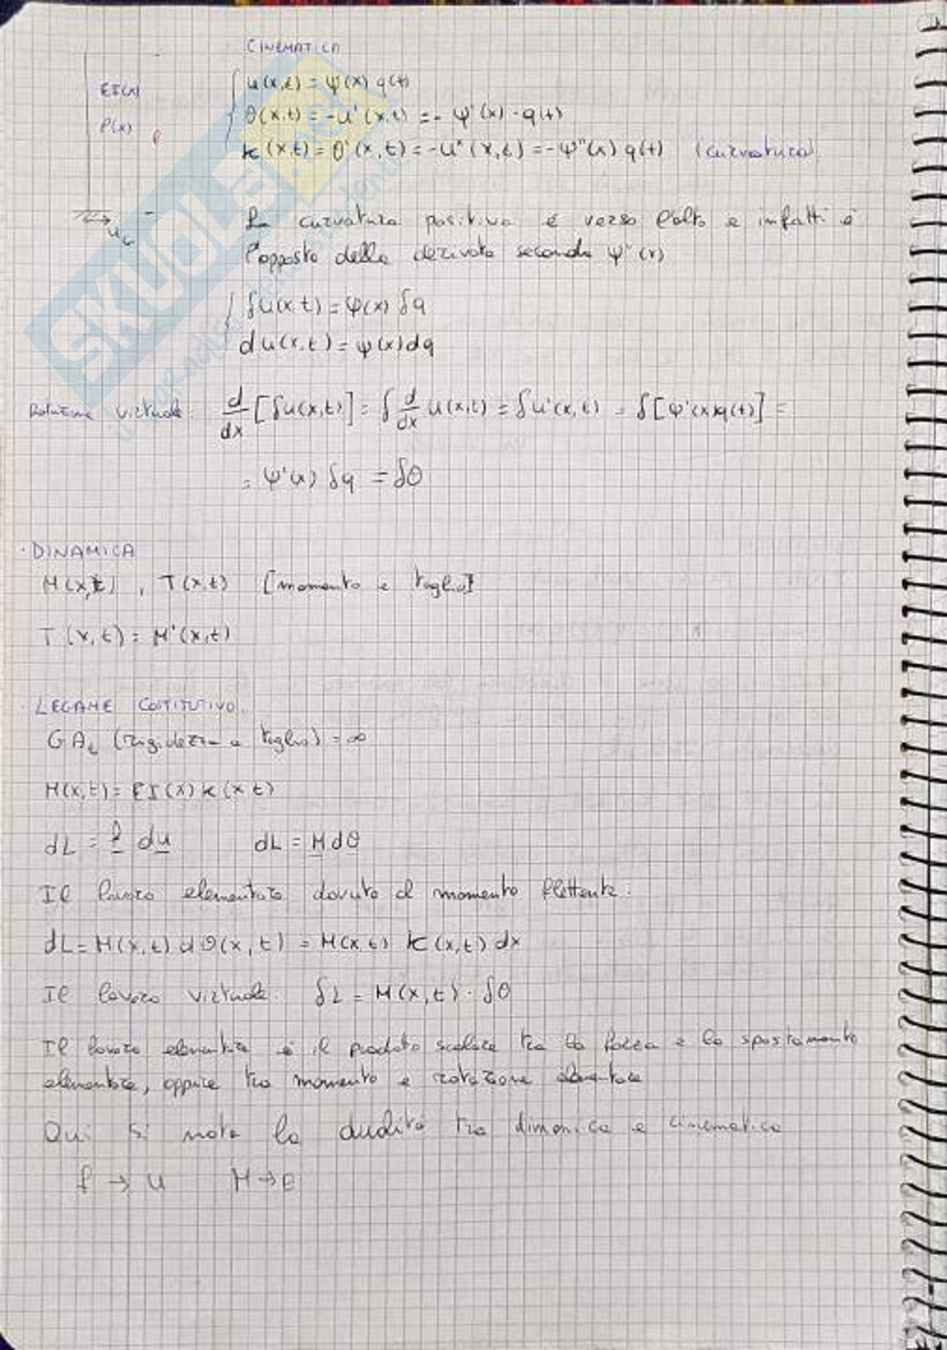 CINEMATICA
EI(x)
ρ(x)
u(x,t) = ψ(x) q(t)
θ(x,t) = -u'(x,t) = - ψ'(x) · q(t)
k(x,t) = θ'(x,t) = -u''(x,t) = -ψ''(x) q(t) (curvatura)
u_G
La curvatura positiva è verso l'alto e infatti è
l'opposto della derivata seconda ψ''(x)
δu(x,t) = ψ(x) δq
du(x,t) = ψ(x) dq
Rotazione virtuale: d/dx [δu(x,t)] = δ d/dx u(x,t) = δu'(x,t) = δ[ψ'(x)q(t)] =
= ψ'(x) δq = δθ
· DINAMICA
M(x,t) , T(x,t) [momento e taglio]
T(x,t) = M'(x,t)
· LEGAME COSTITUTIVO
GA_t (rigidezza a taglio) = ∞
M(x,t) = EI(x) k(x,t)
dL = f du dL = M dθ
Il lavoro elementare dovuto al momento flettente:
dL = M(x,t) dθ(x,t) = M(x,t) k(x,t) dx
Il lavoro virtuale: δL = M(x,t) · δθ
Il lavoro elementare è il prodotto scalare tra la forza e lo spostamento
elementare, oppure tra momento e rotazione elementare
Qui si nota la dualità tra dinamica e cinematica
f → u M → θ
SKUOLA.net